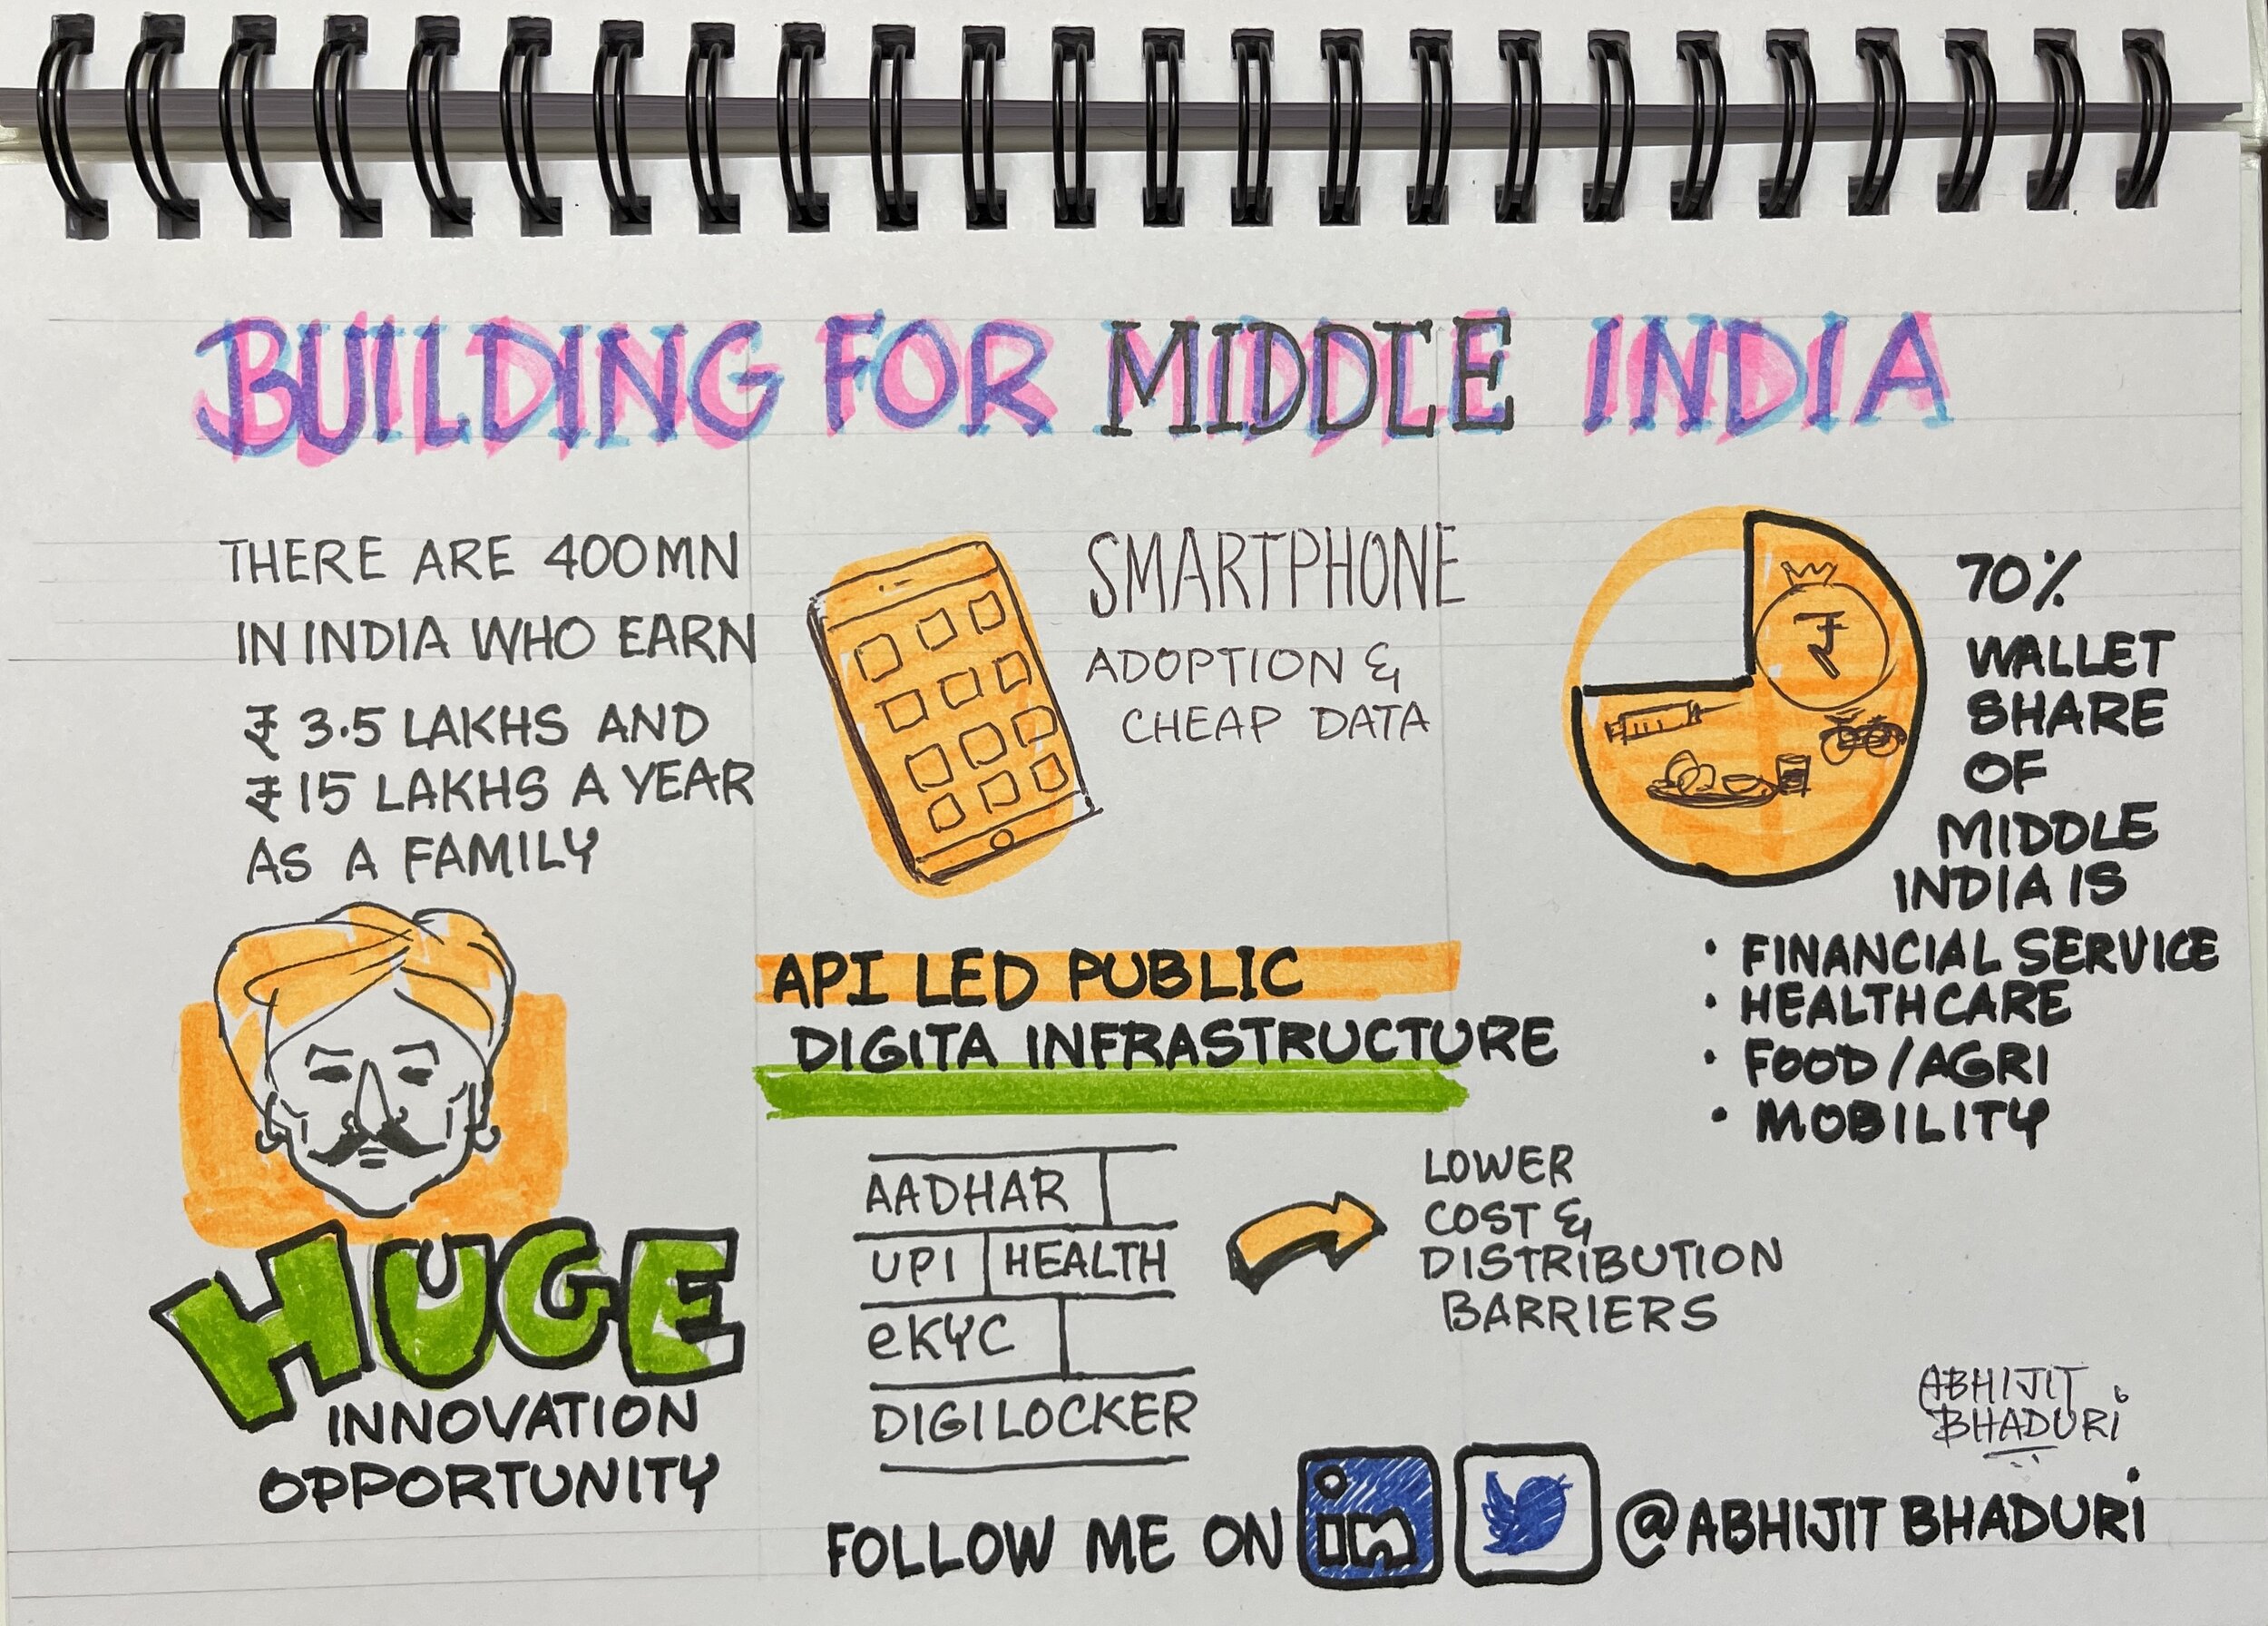 BUILDING FOR MIDDLE INDIA
THERE ARE 400MN
IN INDIA WHO EARN
₹ 3.5 LAKHS AND
₹ 15 LAKHS A YEAR
AS A FAMILY
HUGE
INNOVATION
OPPORTUNITY
SMARTPHONE
ADOPTION &
CHEAP DATA
API LED PUBLIC
DIGITA INFRASTRUCTURE
AADHAR
UPI HEALTH
eKYC
DIGILOCKER
LOWER
COST &
DISTRIBUTION
BARRIERS
₹
70%
WALLET
SHARE
OF
MIDDLE
INDIA IS
• FINANCIAL SERVICE
• HEALTHCARE
• FOOD/AGRI
• MOBILITY
ABHIJIT
BHADURi
FOLLOW ME ON in @ABHIJIT BHADURi